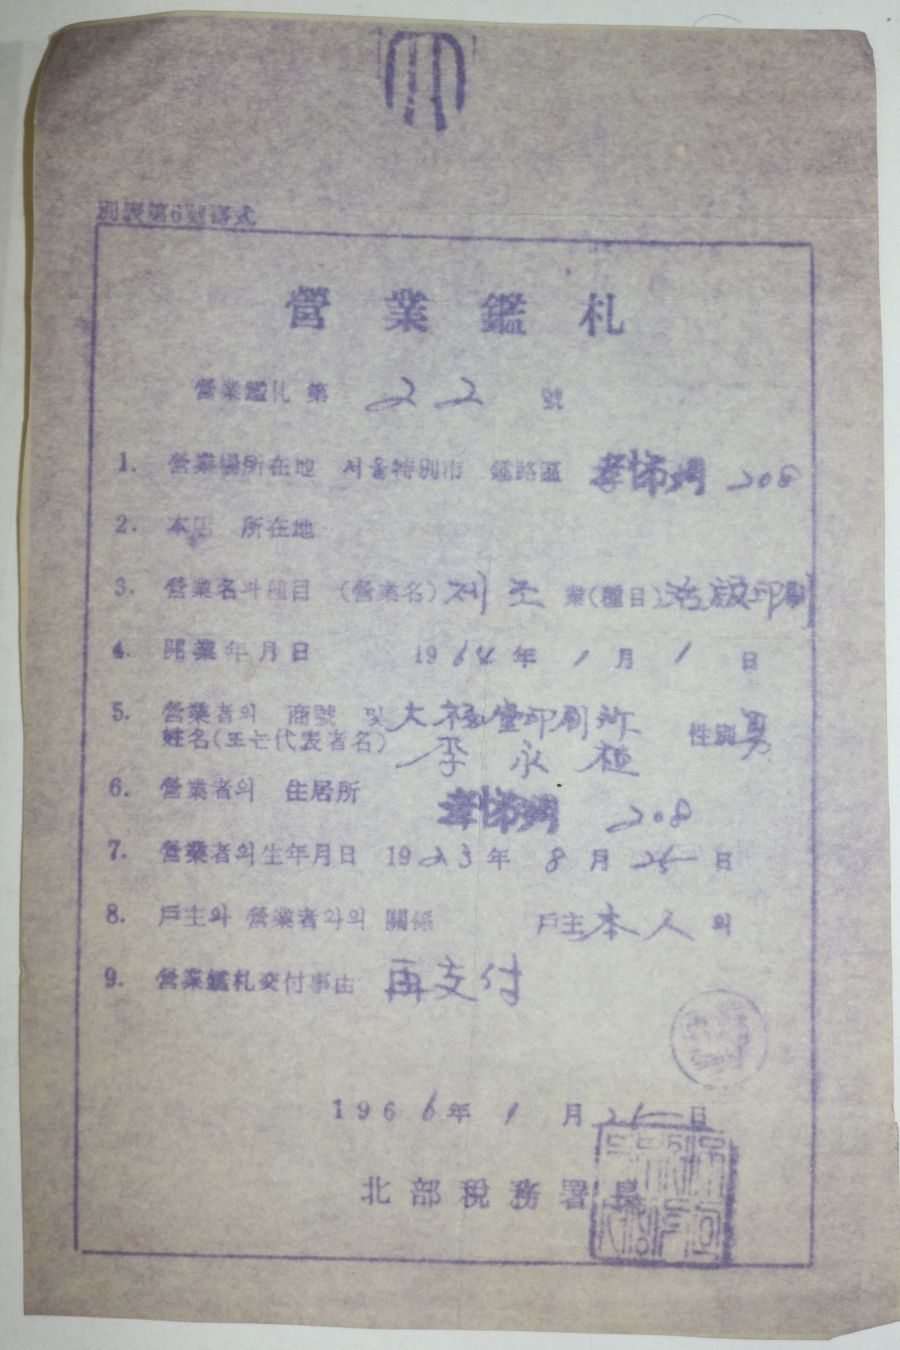 別表第6號書式
營業鑑札
營業鑑札 第 22 號
1. 營業場所在地 서울特別市 鍾路區 孝悌洞 208
2. 本店 所在地
3. 營業名과種目 (營業名) 제조 業(種目) 活版印刷
4. 開業年月日 1964年 1月 1日
5. 營業者의 商號 및 大福堂印刷所
姓名(또는代表者名) 李永植 性別 男
6. 營業者의 住居所 孝悌洞 208
7. 營業者의生年月日 1923年 8月 25日
8. 戶主와 營業者와의 關係 戶主本人의
9. 營業鑑札交付事由 再交付
1966年 1月 25日
北部稅務署長